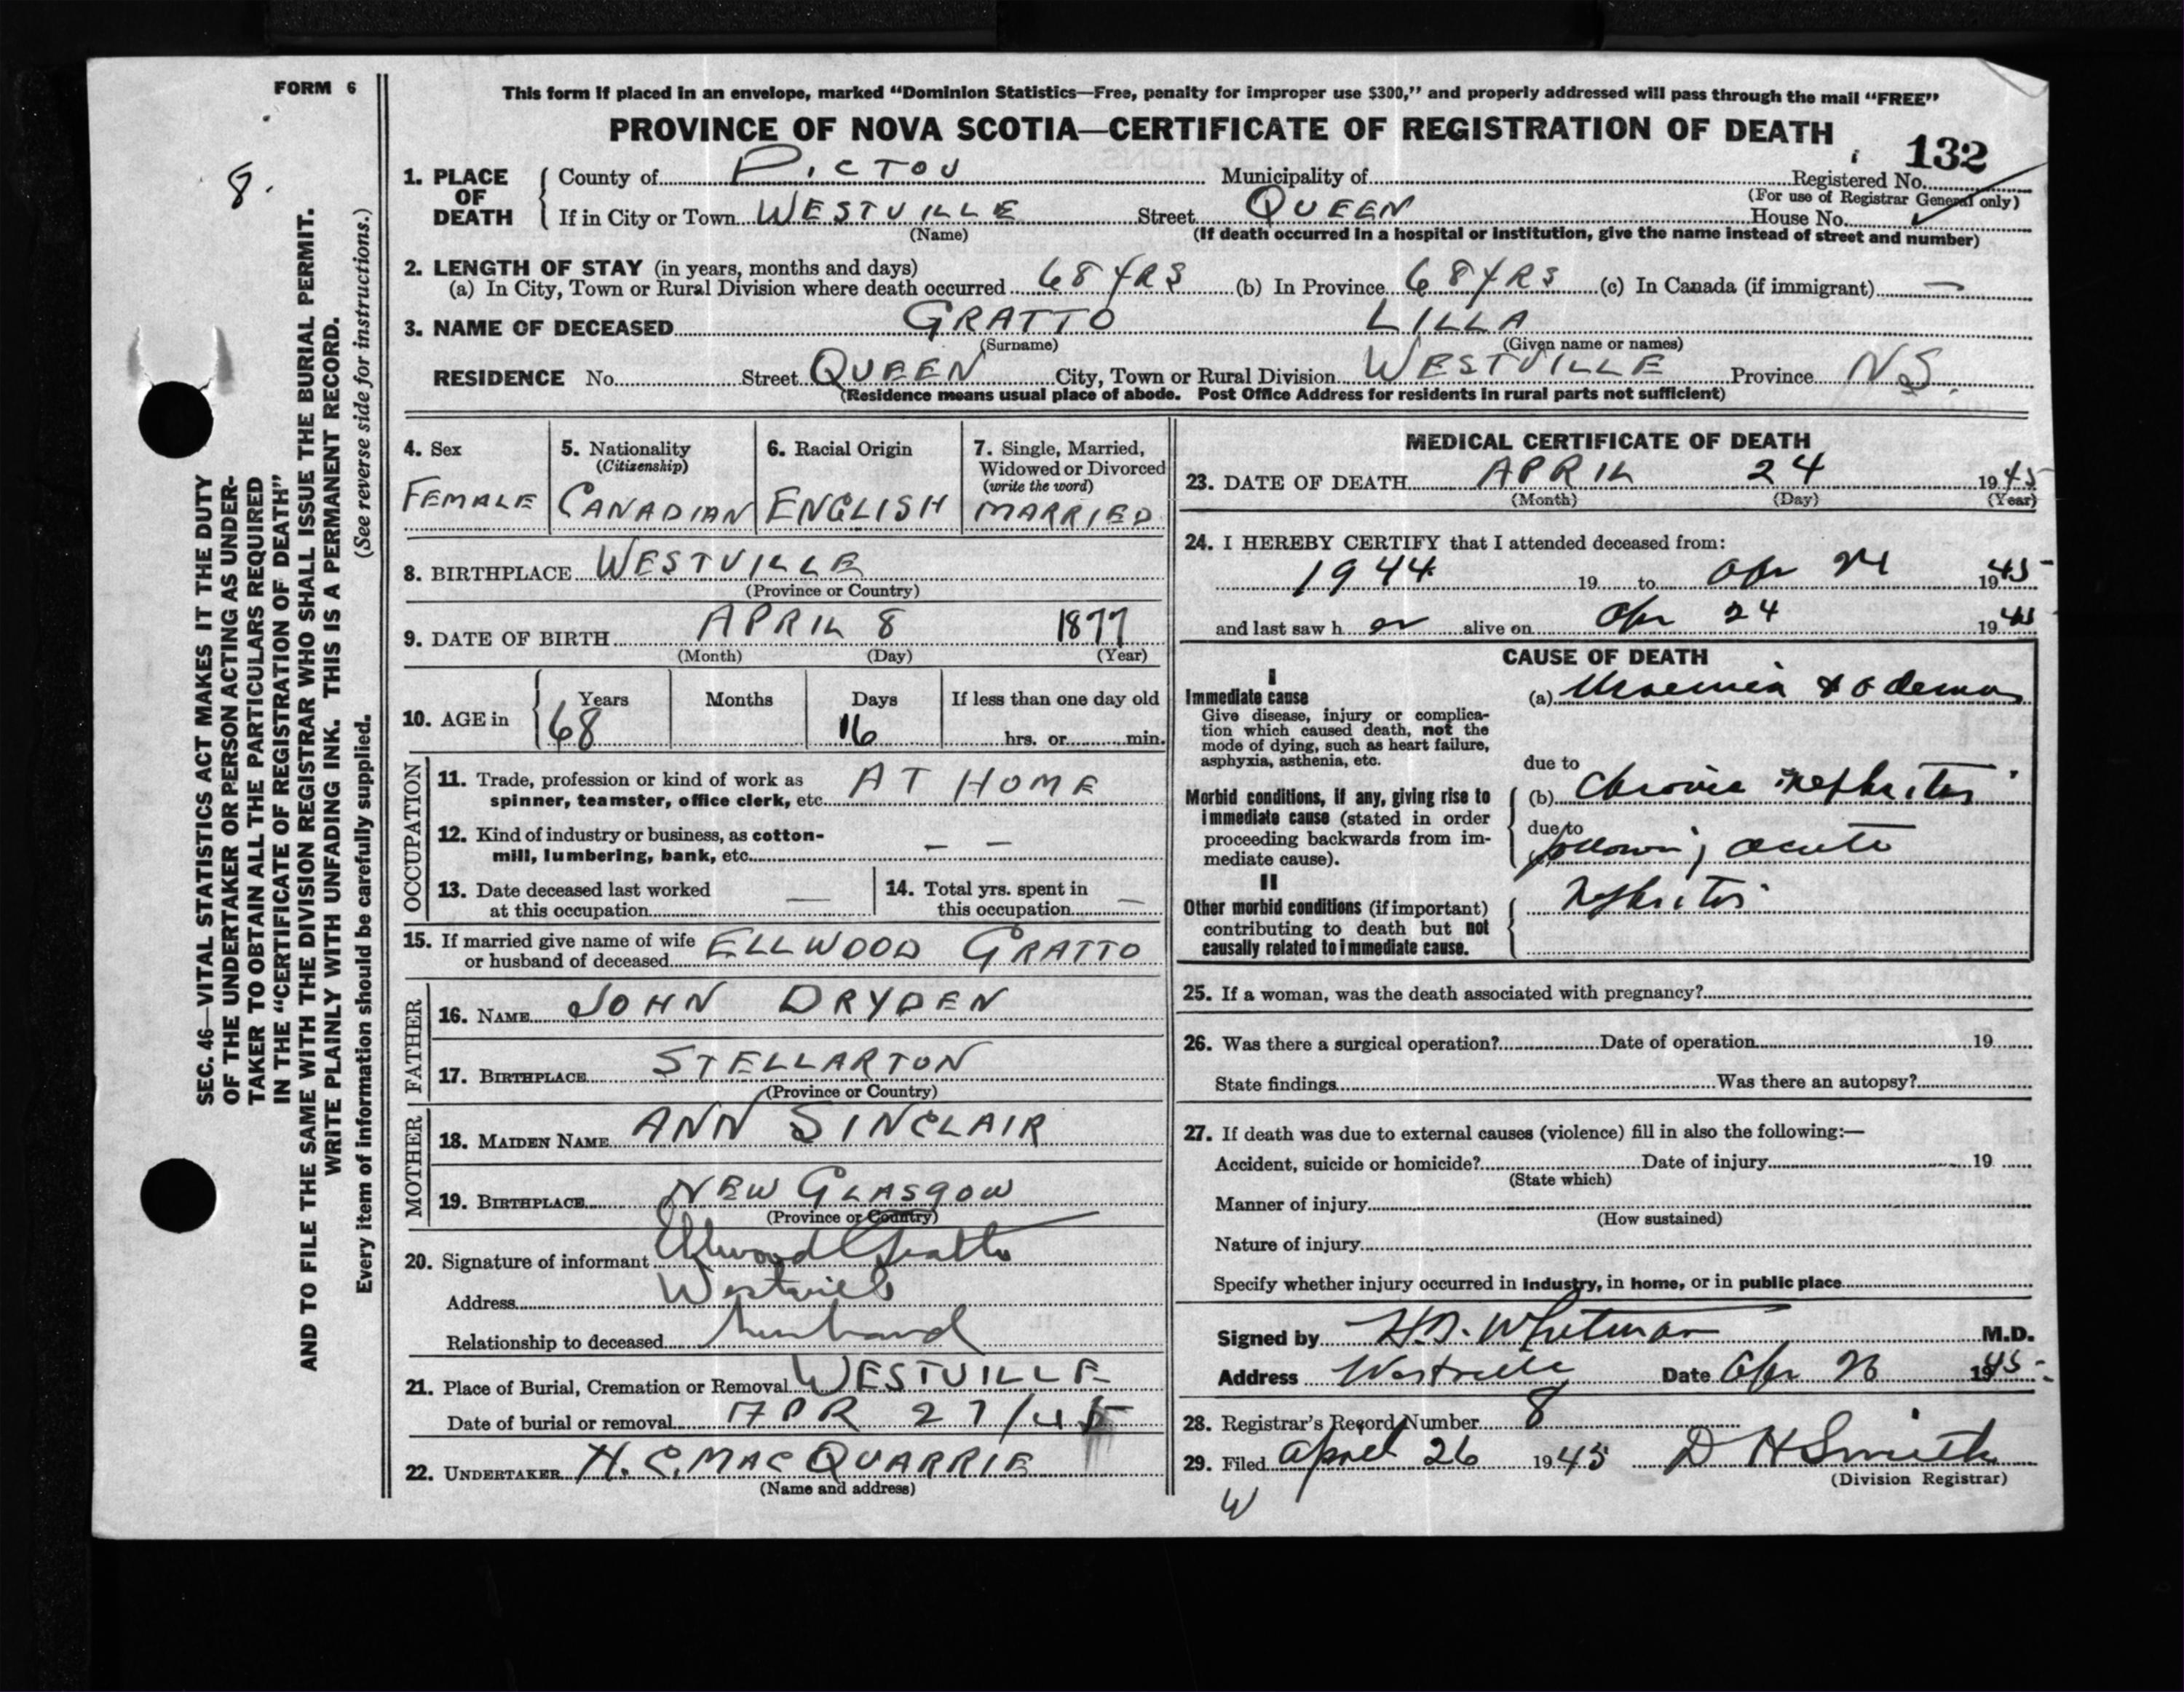 FORM 6
8.
SEC. 46—VITAL STATISTICS ACT MAKES IT THE DUTY
OF THE UNDERTAKER OR PERSON ACTING AS UNDER-
TAKER TO OBTAIN ALL THE PARTICULARS REQUIRED
IN THE "CERTIFICATE OF REGISTRATION OF DEATH"
AND TO FILE THE SAME WITH THE DIVISION REGISTRAR WHO SHALL ISSUE THE BURIAL PERMIT.
WRITE PLAINLY WITH UNFADING INK. THIS IS A PERMANENT RECORD.
Every item of information should be carefully supplied. (See reverse side for instructions.)
This form if placed in an envelope, marked "Dominion Statistics—Free, penalty for improper use $300," and properly addressed will pass through the mail "FREE"
PROVINCE OF NOVA SCOTIA—CERTIFICATE OF REGISTRATION OF DEATH
132
1. PLACE OF DEATH County of PICTOU Municipality of Registered No.
(For use of Registrar General only)
If in City or Town WESTVILLE Street QUEEN House No.
(Name) (If death occurred in a hospital or institution, give the name instead of street and number)
2. LENGTH OF STAY (in years, months and days)
(a) In City, Town or Rural Division where death occurred 68 YRS (b) In Province 68 YRS (c) In Canada (if immigrant) —
3. NAME OF DECEASED GRATTO LILLA
(Surname) (Given name or names)
RESIDENCE No. Street QUEEN City, Town or Rural Division WESTVILLE Province NS.
(Residence means usual place of abode. Post Office Address for residents in rural parts not sufficient)
4. Sex FEMALE
5. Nationality (Citizenship) CANADIAN
6. Racial Origin ENGLISH
7. Single, Married, Widowed or Divorced (write the word) MARRIED
8. BIRTHPLACE WESTVILLE
(Province or Country)
9. DATE OF BIRTH APRIL 8 1877
(Month) (Day) (Year)
10. AGE in Years 68 Months Days 16 If less than one day old hrs. or min.
OCCUPATION
11. Trade, profession or kind of work as
spinner, teamster, office clerk, etc. AT HOME
12. Kind of industry or business, as cotton-
mill, lumbering, bank, etc. — —
13. Date deceased last worked
at this occupation —
14. Total yrs. spent in
this occupation —
15. If married give name of wife
or husband of deceased ELLWOOD GRATTO
FATHER
16. NAME JOHN DRYDEN
17. BIRTHPLACE STELLARTON
(Province or Country)
MOTHER
18. MAIDEN NAME ANN SINCLAIR
19. BIRTHPLACE NEW GLASGOW
(Province or Country)
20. Signature of informant Ellwood Gratto
Address Westville
Relationship to deceased husband
21. Place of Burial, Cremation or Removal WESTVILLE
Date of burial or removal APR 27/45
22. UNDERTAKER H. C. MACQUARRIE
(Name and address)
MEDICAL CERTIFICATE OF DEATH
23. DATE OF DEATH APRIL 24 1945
(Month) (Day) (Year)
24. I HEREBY CERTIFY that I attended deceased from:
1944 19 to Apr 24 1945
and last saw h er alive on Apr 24 1945
CAUSE OF DEATH
I
Immediate cause
Give disease, injury or complica-
tion which caused death, not the
mode of dying, such as heart failure,
asphyxia, asthenia, etc.
(a) Uraemia & odema
due to
Morbid conditions, if any, giving rise to
immediate cause (stated in order
proceeding backwards from im-
mediate cause).
(b) Chronic nephritis
due to
following acute
II
Other morbid conditions (if important)
contributing to death but not
causally related to immediate cause.
Nephritis
25. If a woman, was the death associated with pregnancy?
26. Was there a surgical operation? Date of operation 19
State findings Was there an autopsy?
27. If death was due to external causes (violence) fill in also the following:—
Accident, suicide or homicide? Date of injury 19
(State which)
Manner of injury
(How sustained)
Nature of injury
Specify whether injury occurred in Industry, in home, or in public place
Signed by H.D. Whitman M.D.
Address Westville Date Apr 26 1945
28. Registrar's Record Number 8
29. Filed April 26 1945 D H Smith
(Division Registrar)
W